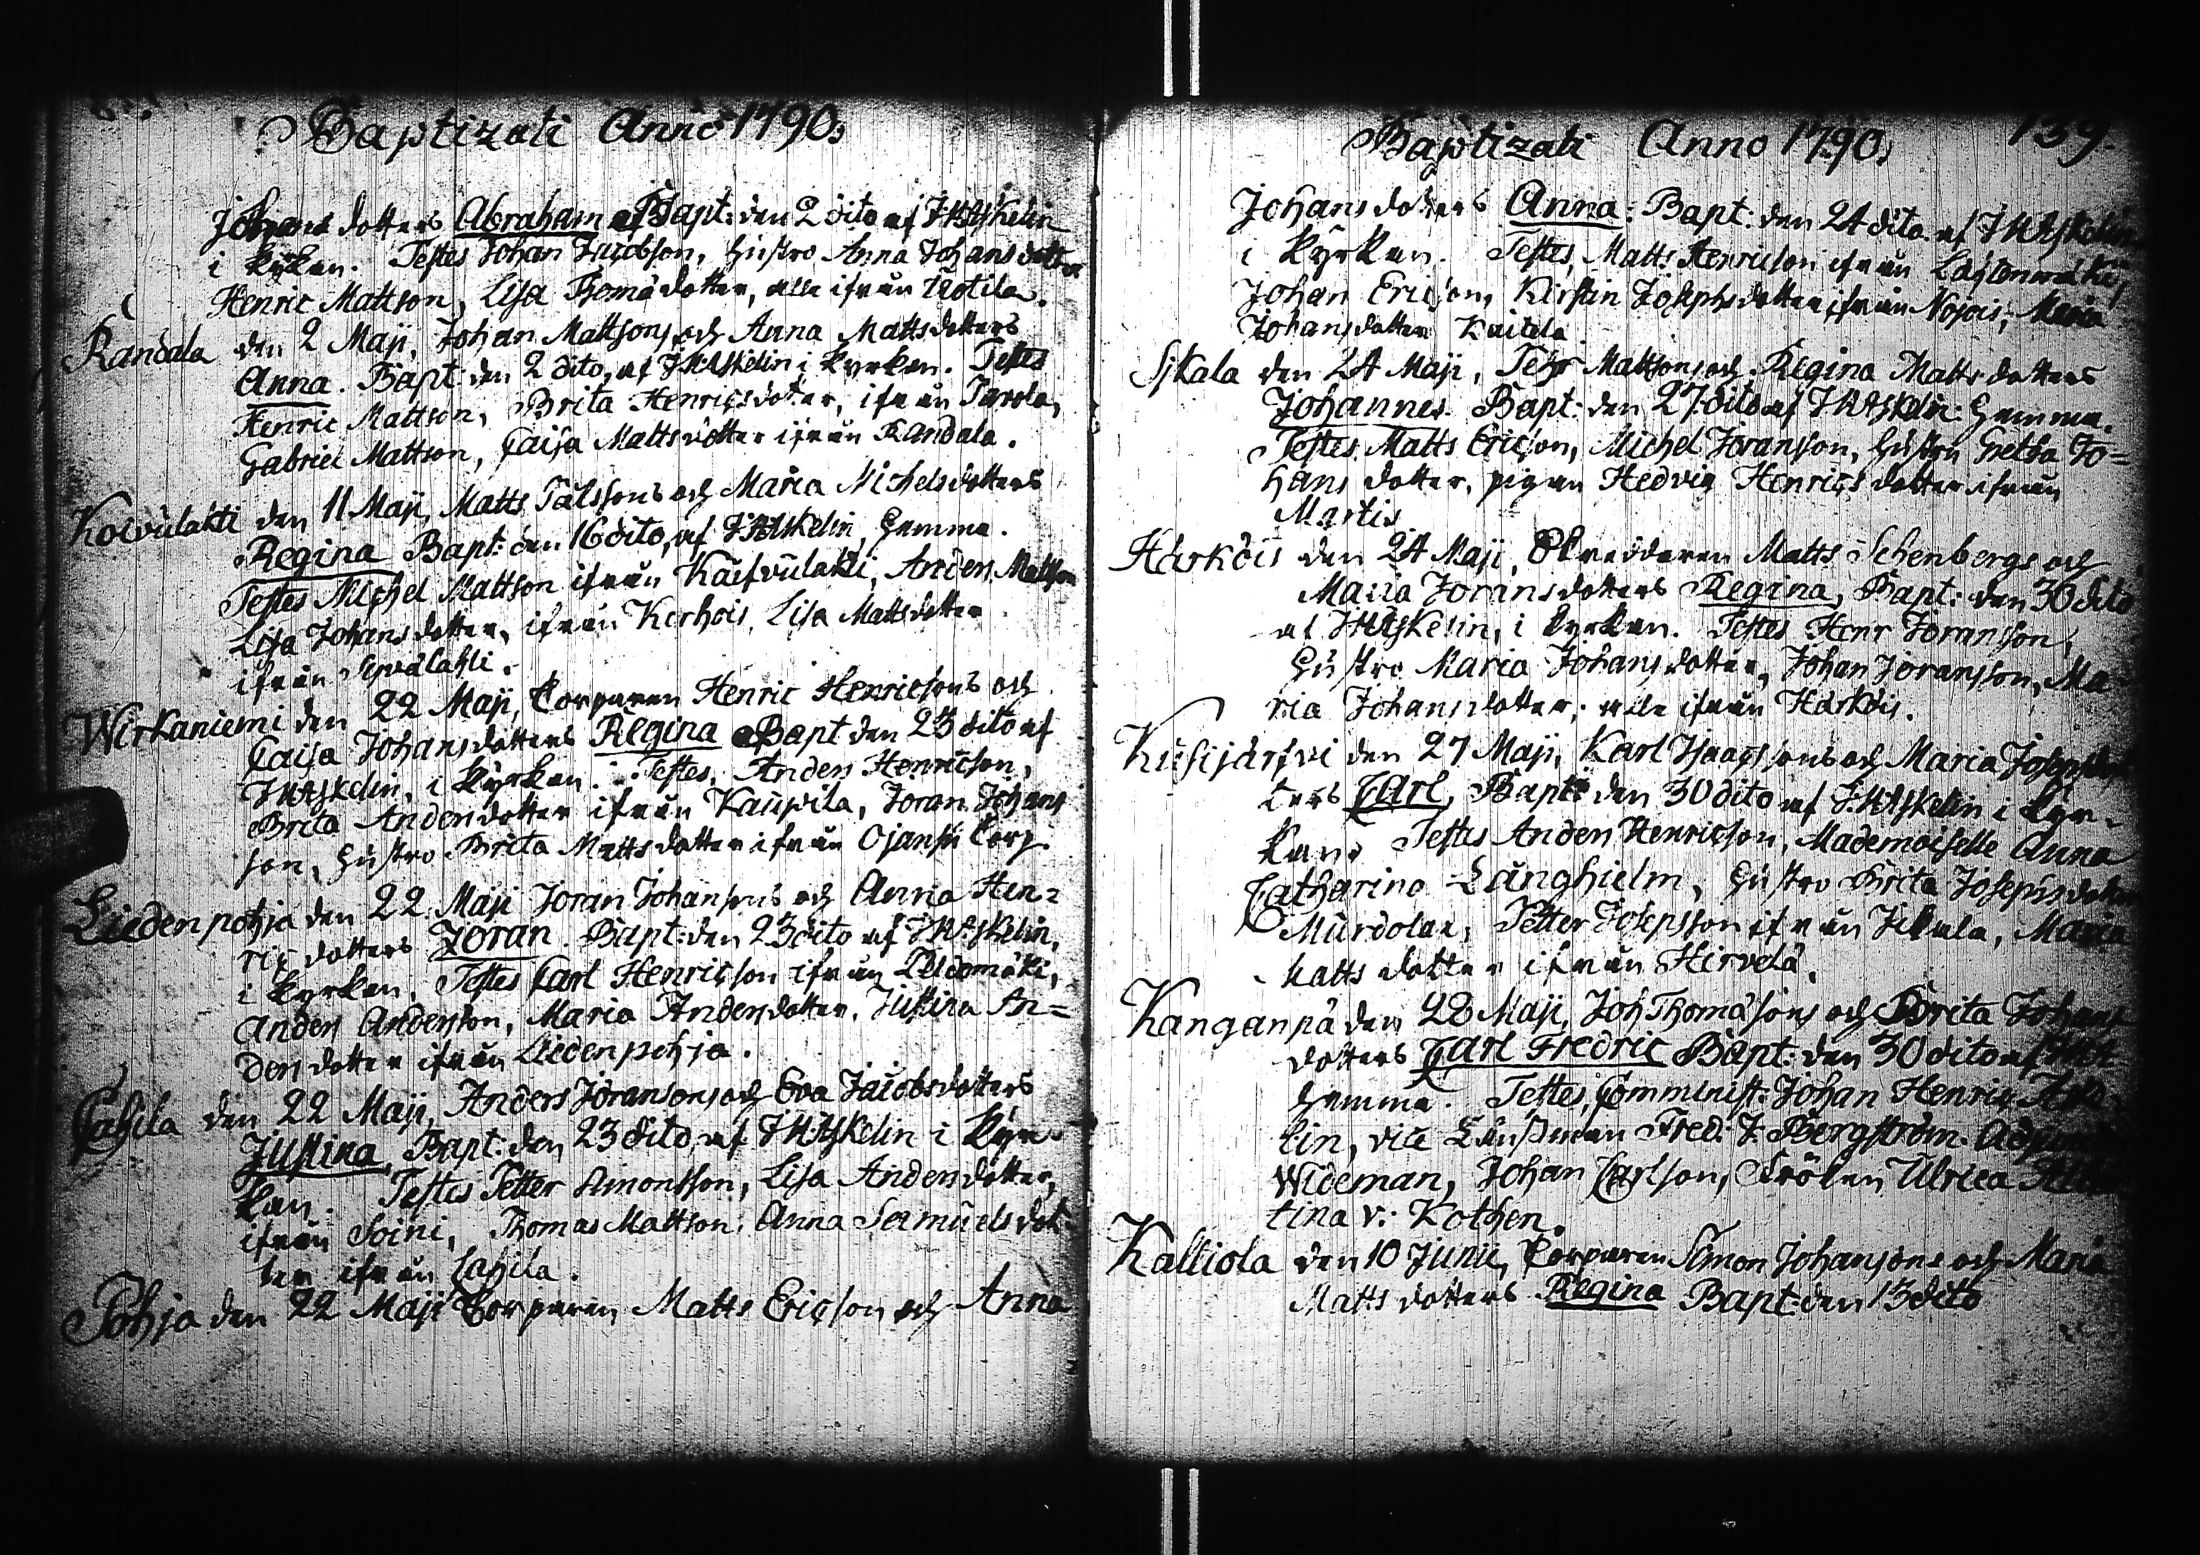 Baptizati Anno 1790,
Johans dotters Abraham Bapt: den 2 dito af JHAskelin
i kÿrkan. Testes Johan Jacobson, Hustro Anna Johansdotter
Henric Mattson, Lisa Thomædotter, alle ifrån Uotila.
Randala den 2 Maji, Johan Mattsons och Anna Mattsdotters
Anna. Bapt: den 2 dito, af JHAskelin i kyrkan. Testes
Henric Mattson, Brita Henricsdotter, ifrån Tarola,
Gabriel Mattson, Caisa Mattsdotter ifrån Randala.
Koivulahti den 11 Maji, Matts Pålssons och Maria Michelsdotters
Regina Bapt: den 16 dito, af JHAskelin, Hemma.
Testes Michel Mattson ifrån Koifvulahti, Anders Mattson
Lisa Johans dotter, ifrån Kerhois, Lisa Mattsdotter
ifrån Syvälahti.
Wirkaniemi den 22 Maji, Torparen Henric Henricsons och
Caisa Johansdotters Regina Bapt den 23 dito af
JHAskelin, i kÿrkan. Testes, Anders Henricson,
Brita Andersdotter ifrån Kaupila, Joran Johans
son, Hustro Brita Matts dotter ifrån Ojansu torp.
Liedenpohja den 22 Maji Joran Johansons och Anna Hen=
rics dotters Joran. Bapt: den 23 dito af JHAskelin,
i kyrkan. Testes Carl Henricson ifrån Peldomäki,
Anders Anderson, Maria Andersdotter, Justina An=
ders dotter ifrån Liedenpohja.
Cahila den 22 Maji, Anders Joransons och Eva Jacobsdotters
Justina, Bapt: den 23 dito, af JHAskelin i kÿr
kan. Testes Petter Simonsson, Lisa Andersdotter,
ifrån Soini, Thomas Mattson, Anna Samuels dot=
ter ifrån Cahila.
Pohja den 22 Maji Torparen Matts Ericson och Anna
Baptizati Anno 1790, 139.
Johans dotters Anna: Bapt: den 24 dito af JHAskelin
i kÿrkan. Testes, Matts Henricson ifrån
Johan Ericson, Kirstin Josephsdotter ifrån Nojois, Maria
Johansdotter Kaitala
Sjkala den 24 Maji, Petr Mattsons och Regina Matts dotters
Johannes. Bapt: den 27 dito af JHAskelin: Hemma.
Testes. Matts Ericson, Michel Joranson, Hustru Gretha Jo=
hans dotter, pigan Hedvig Henrics dotter ifrån
Martis
Härköis den 24 Maji, Matts Schenbergs och
Maria Joransdotters Regina, Bapt: den 30 dito
af JHAskelin, i kyrkan. Testes Henr Joranson,
Hustro Maria Johans dotter, Johan Joransson, Ma=
ria Johans dotter, alle ifrån Härköis.
Kusijärfvi den 27 Maji, Karl Isaacssons och Maria Josephsdot
ters Carl, Bapt: den 30 dito af JHAskelin i kyr=
kan, Testes Anders Henricson, Mademoiselle Anna
Catharina Långhielm, Hustro Brita Josephsdotter
Murdola, Petter Josepsson ifrån Jikala, Maria
Matts dotter ifrån Hirvelä.
Kanganpä den 28 Maji, Joh Thomæsons och Brita Johans
dotters Carl Fredric Bapt: den 30 dito af JHA
Hemma. Testes, Comminist: Johan Henric Aske
lin, vice Länsman Fred: J. Bergström.
Wideman, Johan Carlson, Fröken Ulrica
tina v: Kothen.
Kalliola den 10 Junii, Torparen Simon Johansons och Maria
Matts dotters Regina Bapt: den 13 dito